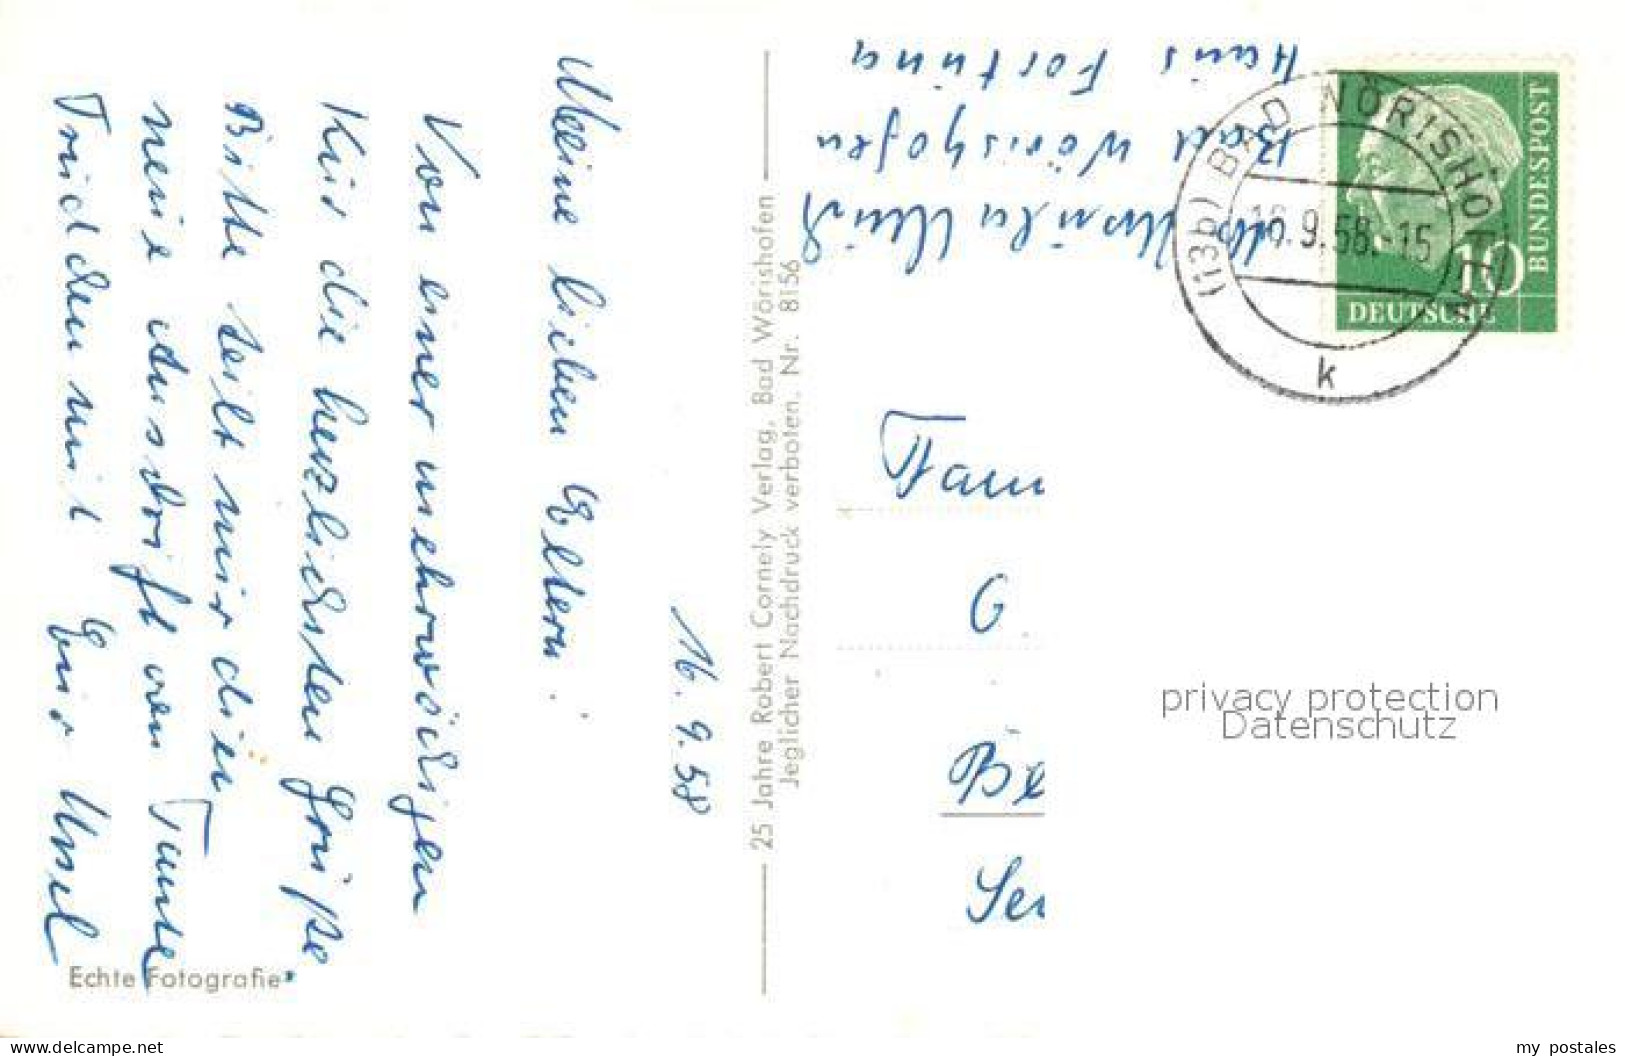 16.9.58
Meine lieben Eltern!
Von einer mehrwöchigen
Kur die herzlichsten Grüße
Bitte teilt mir die
neue Anschrift von Tante
Trudchen mit Eure Ursel
Echte Fotografie
25 Jahre Robert Cornely Verlag, Bad Wörishofen
Jeglicher Nachdruck verboten. Nr. 8156
Ursula
Bad Wörishofen
Haus Fortuna
(13b) BAD WÖRISHOFEN
.9.58.-15
k
10
DEUTSCHE
BUNDESPOST
Fam
G
Be
privacy protection
Datenschutz
www.delcampe.net
my_postales